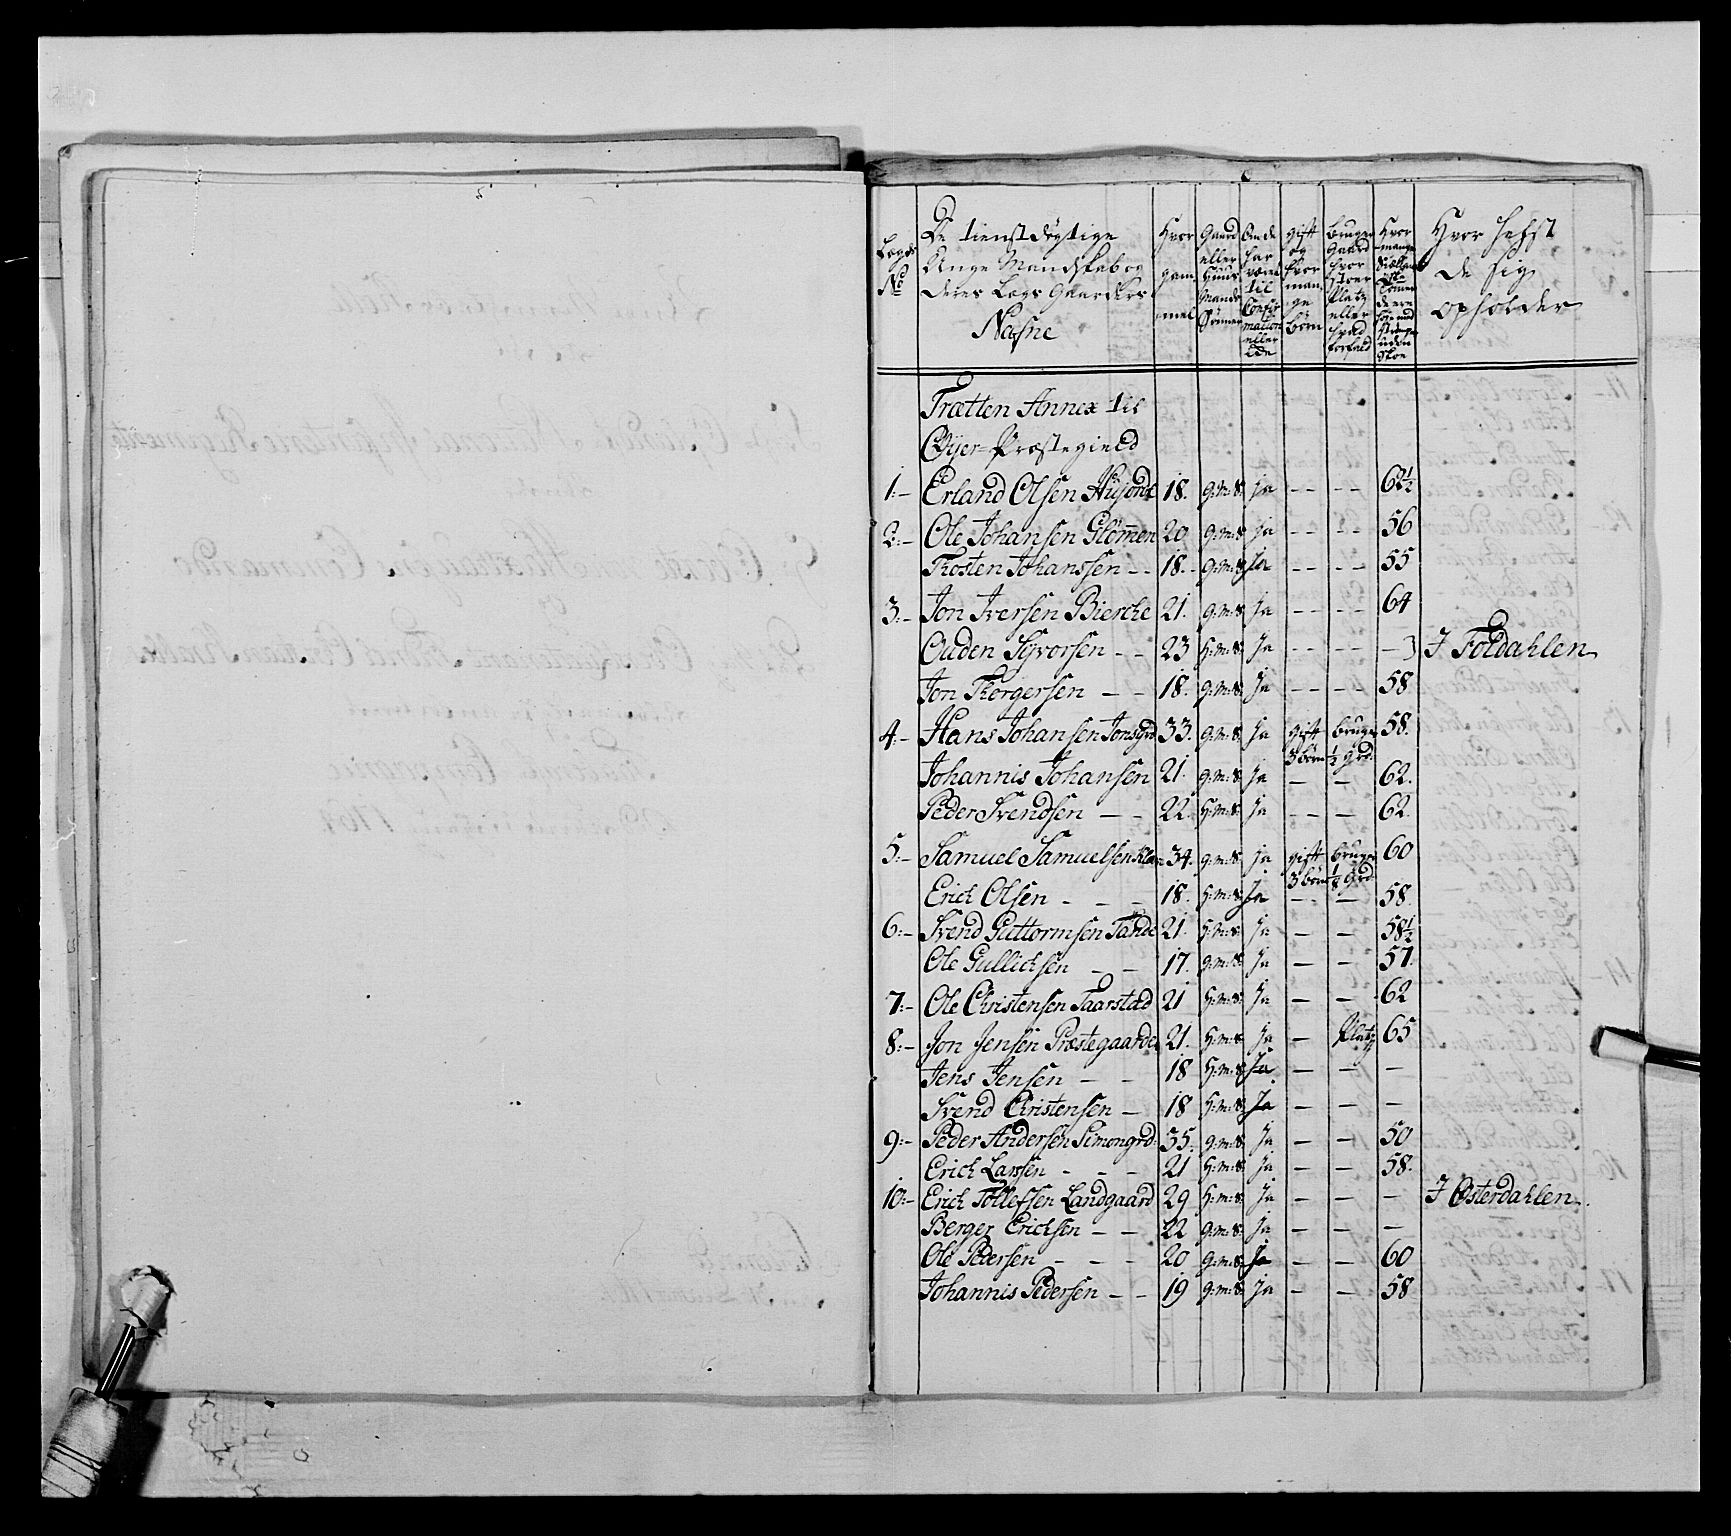 Legds No
De tienstdÿgtige Unge Mandskab og deres Legs Gaarders Nafne
Hvor gam- mel
Gaard eller Huus Mands Sönner
Om de har været til Confirmation eller Ede
gift og hvor man- ge börn
bruger Gaard hvor stoer Platz eller hvad forfald
Hvor mange
uden Skoe
Hvor helst de sig opholder
Trætten Annex til
Öÿer-Præstegield
1:- Erland Olsen 18. g:m:s: ja - - - - 62 1/2
2:- Ole Johansen Glömmen 20 g:m:s: ja - - - - 56
Thosten Johanssen - - 18. g:m:s: Ja - - - - 55
3:- Jon Iversen Bierche 21. g:m:s: Ja - - - - 64
Ouden Syvorsen - - 23 H:m:s: Ja - - - - - I Foldahlen
Jon Thorgersen - - 18. g:m:s: Ja - - - - 58
4:- Hans Johansen Jonsgrd 33. g:m:s: Ja gift 3 börn bruger 1/2 grd: 58.
Johannis Johansen 21. g:m:s: Ja - - 62.
Peder Svendsen - - 22. H:m:s: Ja - - - 62.
5:- Samuel Samuelsen 34. g:m:s: ja gift 3 börn bruger 1/8 grd 60
Erich Olsen - - - 18. H:m:s: Ja - - - 58.
6:- Svend Guttormsen Tande 21. H:m:s: Ja - - 58 1/2
Ole Gullichsen - - 17. g:m:s: Ja - - 57.
7:- Ole Christensen Taarstad 21 H:m:s: Ja - - 62
8:- Jon Jensen Præstegaarde 21. H:m:s: Ja - Platz 65
Jens Jensen - - 18 H:m:s: Ja - - -
Svend Christensen - 18 H:m:s: Ja - - -
9:- Peder Andersen Simongrd: 35. g:m:s: Ja - - 50
Erich Larssen - - - 21 H:m:s: ja - - 58.
10:- Erich Tollefssen Landgaard 29 H:m:s: Ja - - - I Østerdahlen
Berger Erichsen - - 22 g:m:s: ja - - -
Ole Pedersen - - - 20 g:m:s: Ja - - 60
Johannis Pedersen - - 19 g:m:s: Ja - - 58